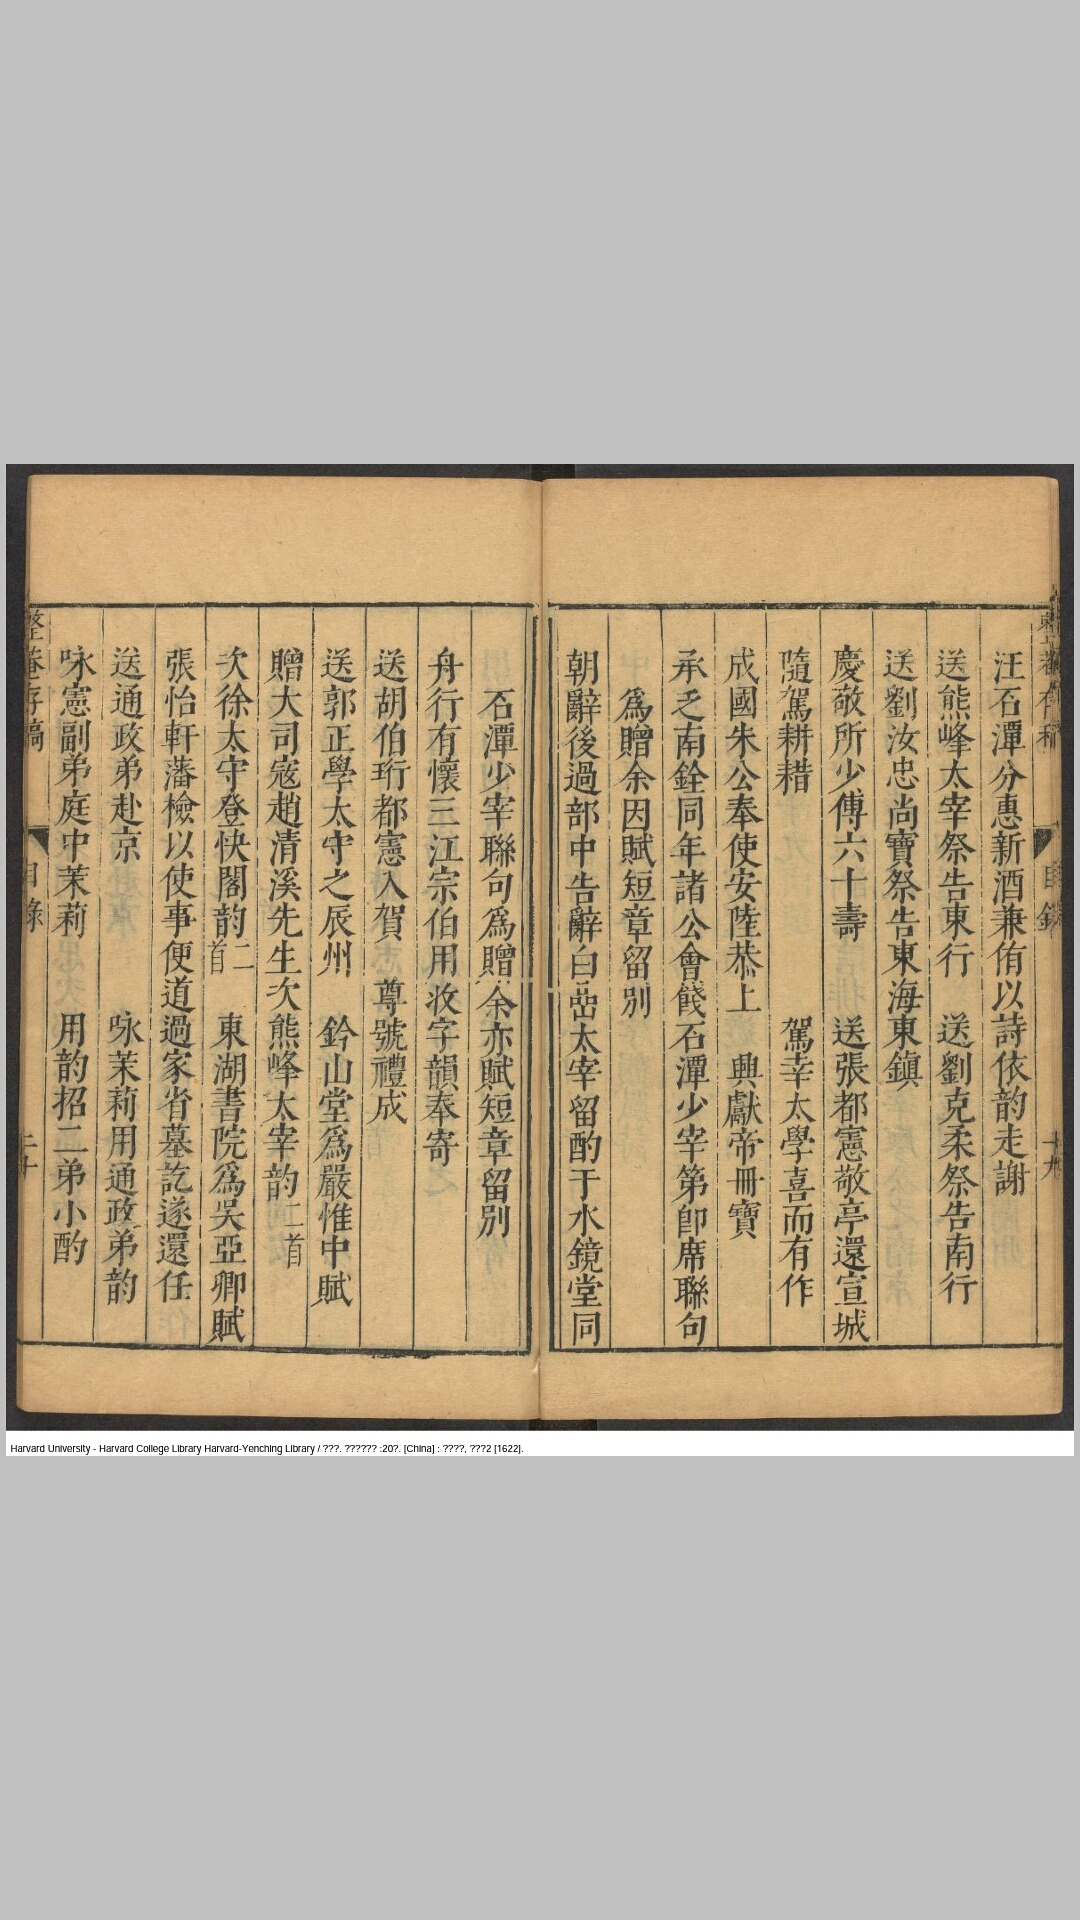 汪石潭分惠新酒兼侑以詩依韵走謝
送熊峰太宰祭告東行　送劉克柔祭告南行
送劉汝忠尚寶祭告東海東鎮
慶敬所少傅六十壽　送張都憲敬亭還宣城
隨駕耕耤　駕幸太學喜而有作
成國朱公奉使安陸恭上　興獻帝冊寶
承乏南銓同年諸公會餞石潭少宰第卽席聯句
爲贈余因賦短章留別
朝辭後過部中告辭白嵓太宰留酌于水鏡堂同
石潭少宰聯句爲贈余亦賦短章留別
舟行有懷三江宗伯用妝字韻奉寄
送胡伯珩都憲入賀　尊號禮成
送郭正學太守之辰州　鈐山堂爲嚴惟中賦
贈大司寇趙清溪先生次熊峰太宰韵二首
次徐太守登快閣韵二首　東湖書院爲吳亞卿賦
張怡軒藩檢以使事便道過家省墓訖遂還任
送通政弟赴京　咏茉莉用通政弟韵
咏憲副弟庭中茉莉　用韵招二弟小酌
整菴存稿　目錄　二十
Harvard University - Harvard College Library Harvard-Yenching Library / ???. ?????? :20?. [China] : ????, ???2 [1622].